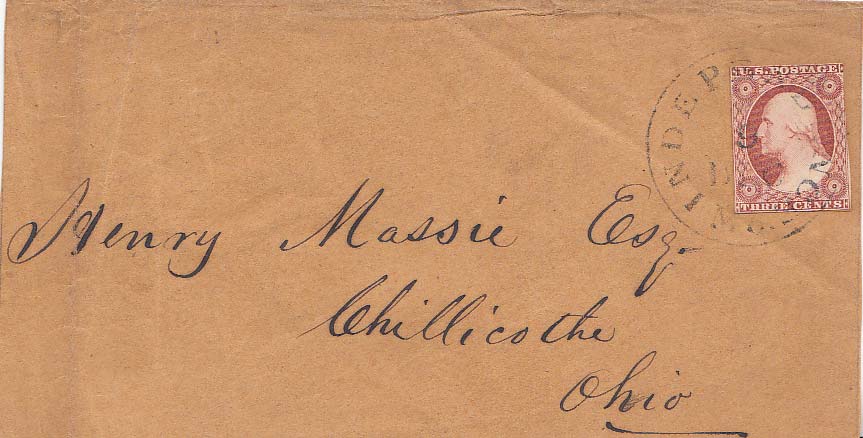 U.S. POSTAGE
THREE CENTS
Henry Massie Esq.
Chillicothe
Ohio